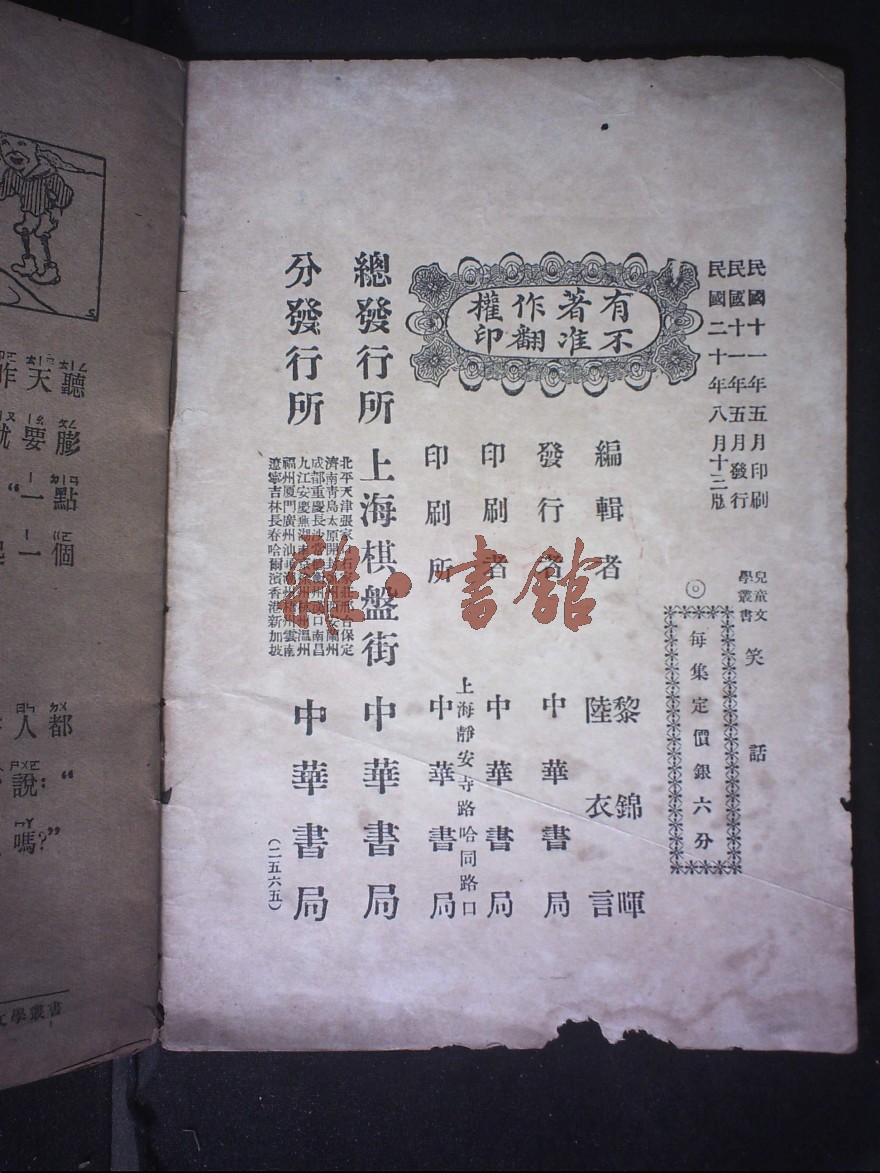 民國十一年五月印刷
民國十一年五月發行
民國二十年八月十三版
兒童文
學叢書
笑話
◎
每集定價銀六分
有著作權
不准翻印
編輯者 黎錦暉
陸衣言
發行者 中華書局
印刷者 中華書局
上海靜安寺路哈同路口
印刷所 中華書局
總發行所 上海棋盤街 中華書局
分發行所 中華書局
北平天津張家口石家莊邢台保定
濟南青島太原開封 西安蘭州
成都重慶長沙常德衡州漢口南昌
九江安慶蕪湖 杭州溫州
福州厦門廣州汕頭 梧州雲南
遼寧吉林長春哈爾濱香港新加坡
(二五六五)
雜·書館
聽
天
昨
膨
要
就
點
一
“
個
一
都
人
“
說:
嗎?”
文學叢書